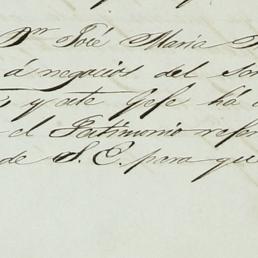 Dn José María
á negocios del
y este Gefe há
el Testimonio
de S. E. para que